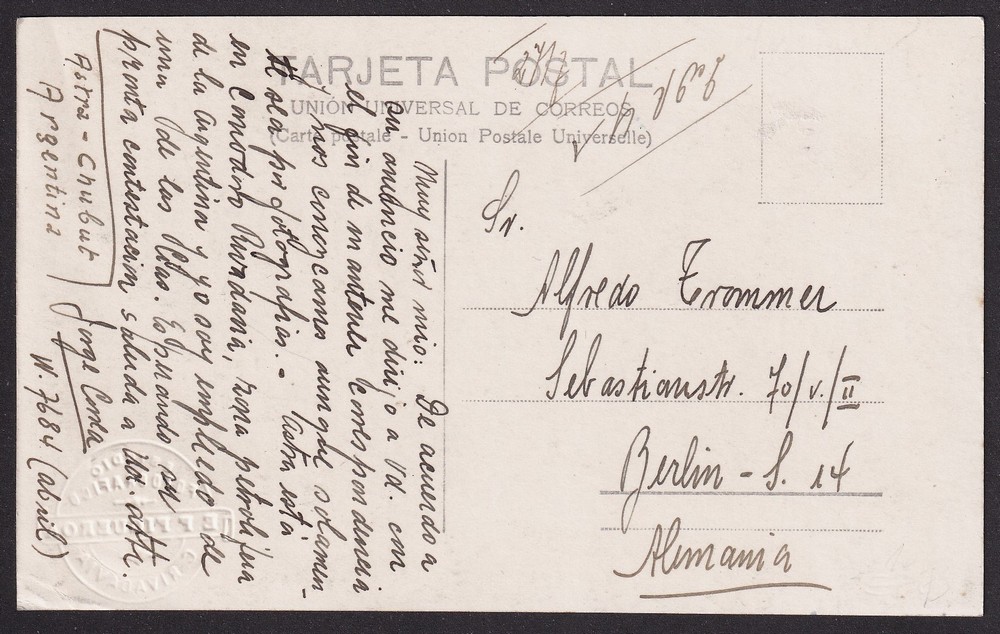 TARJETA POSTAL
UNIÓN UNIVERSAL DE CORREOS
(Carte postale - Union Postale Universelle)
Muy señor mio: De acuerdo a
su anuncio me dirijo a Vd. con
el fin de mantener correspondencia
y nos conozcamos aunque solamen-
te sea por fotografias. - Astra está
en Comodoro Rivadavia, zona petrolifera
de la Argentina y yo soy empleado de
una de las Cías. Esperando su
pronta contestación saluda a Ud. atte.
Jorge Corea
N. 7684 (abril)
Astra - Chubut
Argentina
Sr.
Alfredo Trommer
Sebastianstr. 70/v./II
Berlin - S. 14
Alemania